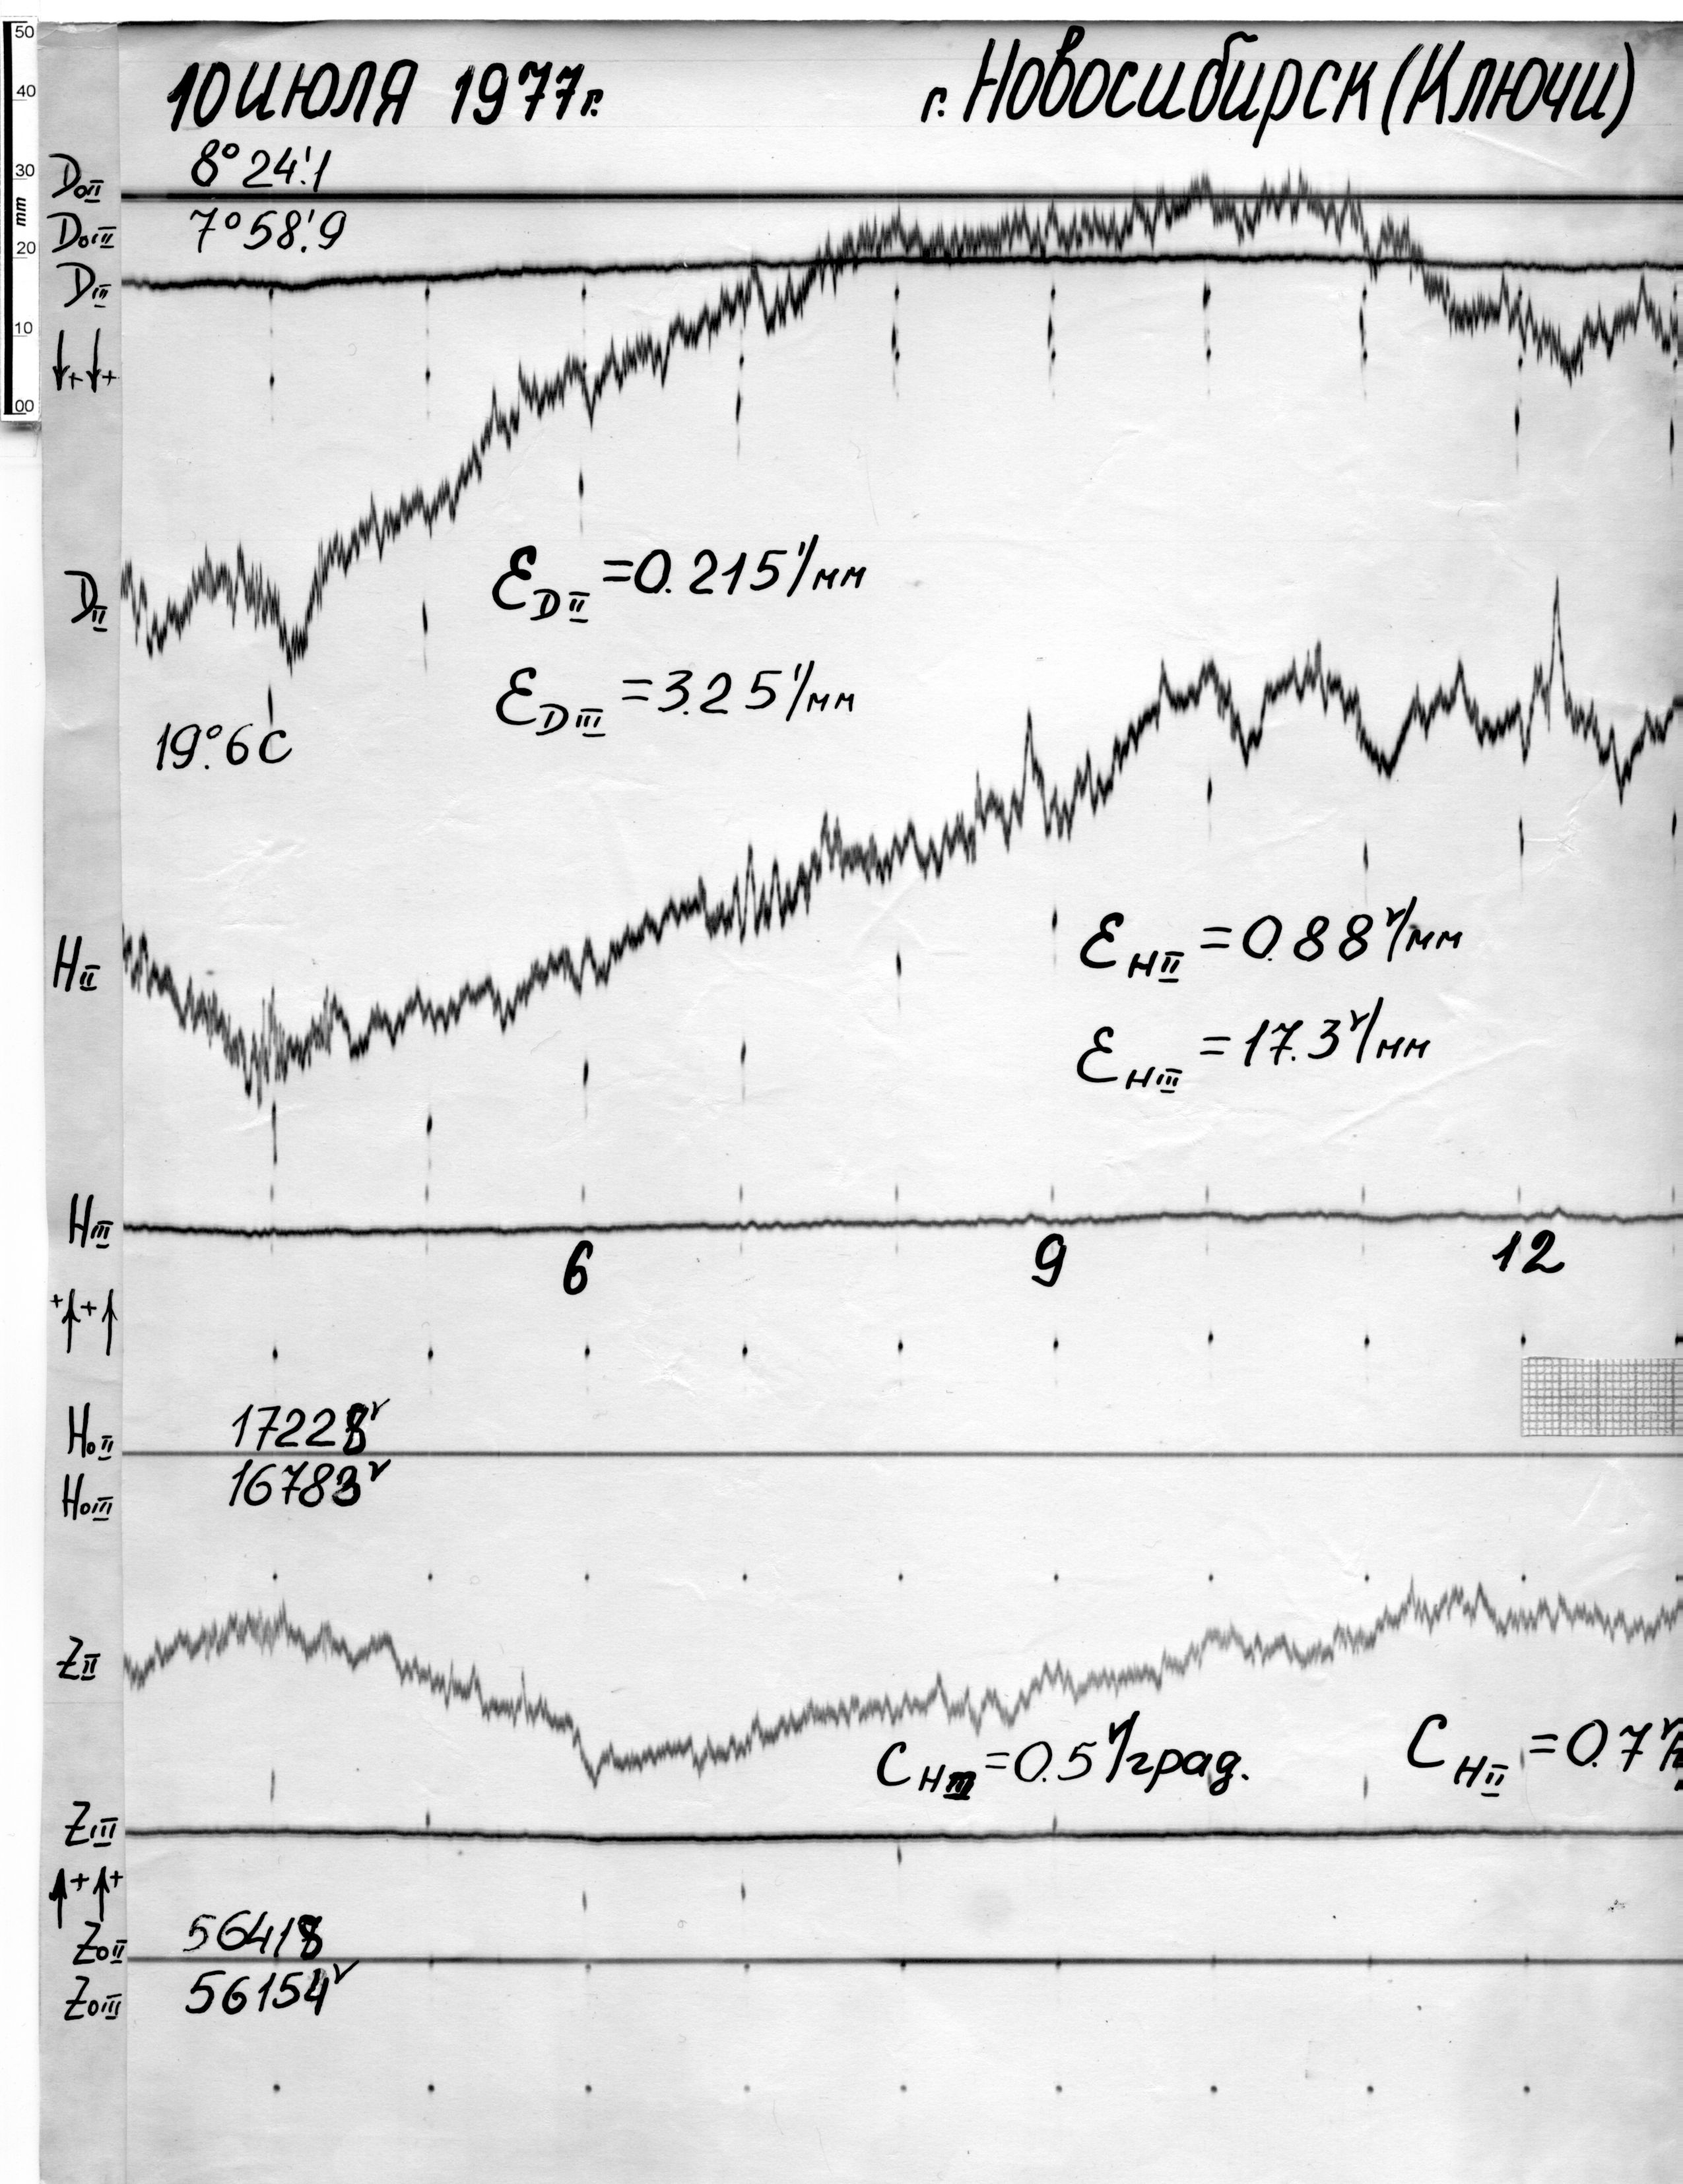 50
40
30
mm
20
10
00
10 июля 1977г.
г. Новосибирск (Ключи)
D₀II 8°24.'1
D₀III 7°58.'9
DIII
↓+↓+
DII
ℰDII = 0.215'/мм
ℰDIII = 3.25'/мм
19.°6 C
HII
ℰHII = 0.88γ/мм
ℰHIII = 17.3γ/мм
HIII
6 9 12
+↑+↑
H₀II 17228γ
H₀III 16783γ
ZII
CHIII = 0.5γ/град.
CHII = 0.7γ/
ZIII
↑+↑+
Z₀II 56418
Z₀III 56154γ